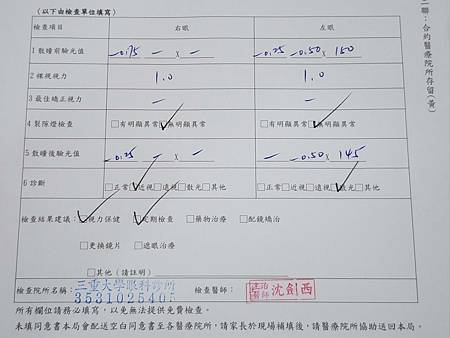 (以下由檢查單位填寫)
檢查項目 右眼 左眼
1散瞳前驗光值 -0.75 - x - -0.25 -0.50 x 150
2裸視視力 1.0 1.0
3最佳矯正視力 - -
4裂隙燈檢查 □有明顯異常 □無明顯異常 □有明顯異常 □無明顯異常
5散瞳後驗光值 -0.25 - x - - -0.50 x 145
6診斷 □正常 □近視 □遠視 □散光 □其他 □正常 □近視 □遠視 □散光 □其他
檢查結果建議: □視力保健 □定期檢查 □藥物治療 □配鏡矯治
□更換鏡片 □遮眼治療
□其他(請註明)
檢查院所名稱: 三重大學眼科診所 檢查醫師: 主治醫師 沈劍西
3531025405
所有欄位請務必填寫,以免無法提供免費檢查。
未填同意書本局會配送空白同意書至各醫療院所,請家長於現場補填後,請醫療院所協助送回本局。
二聯:合約醫療院所存留(黃)